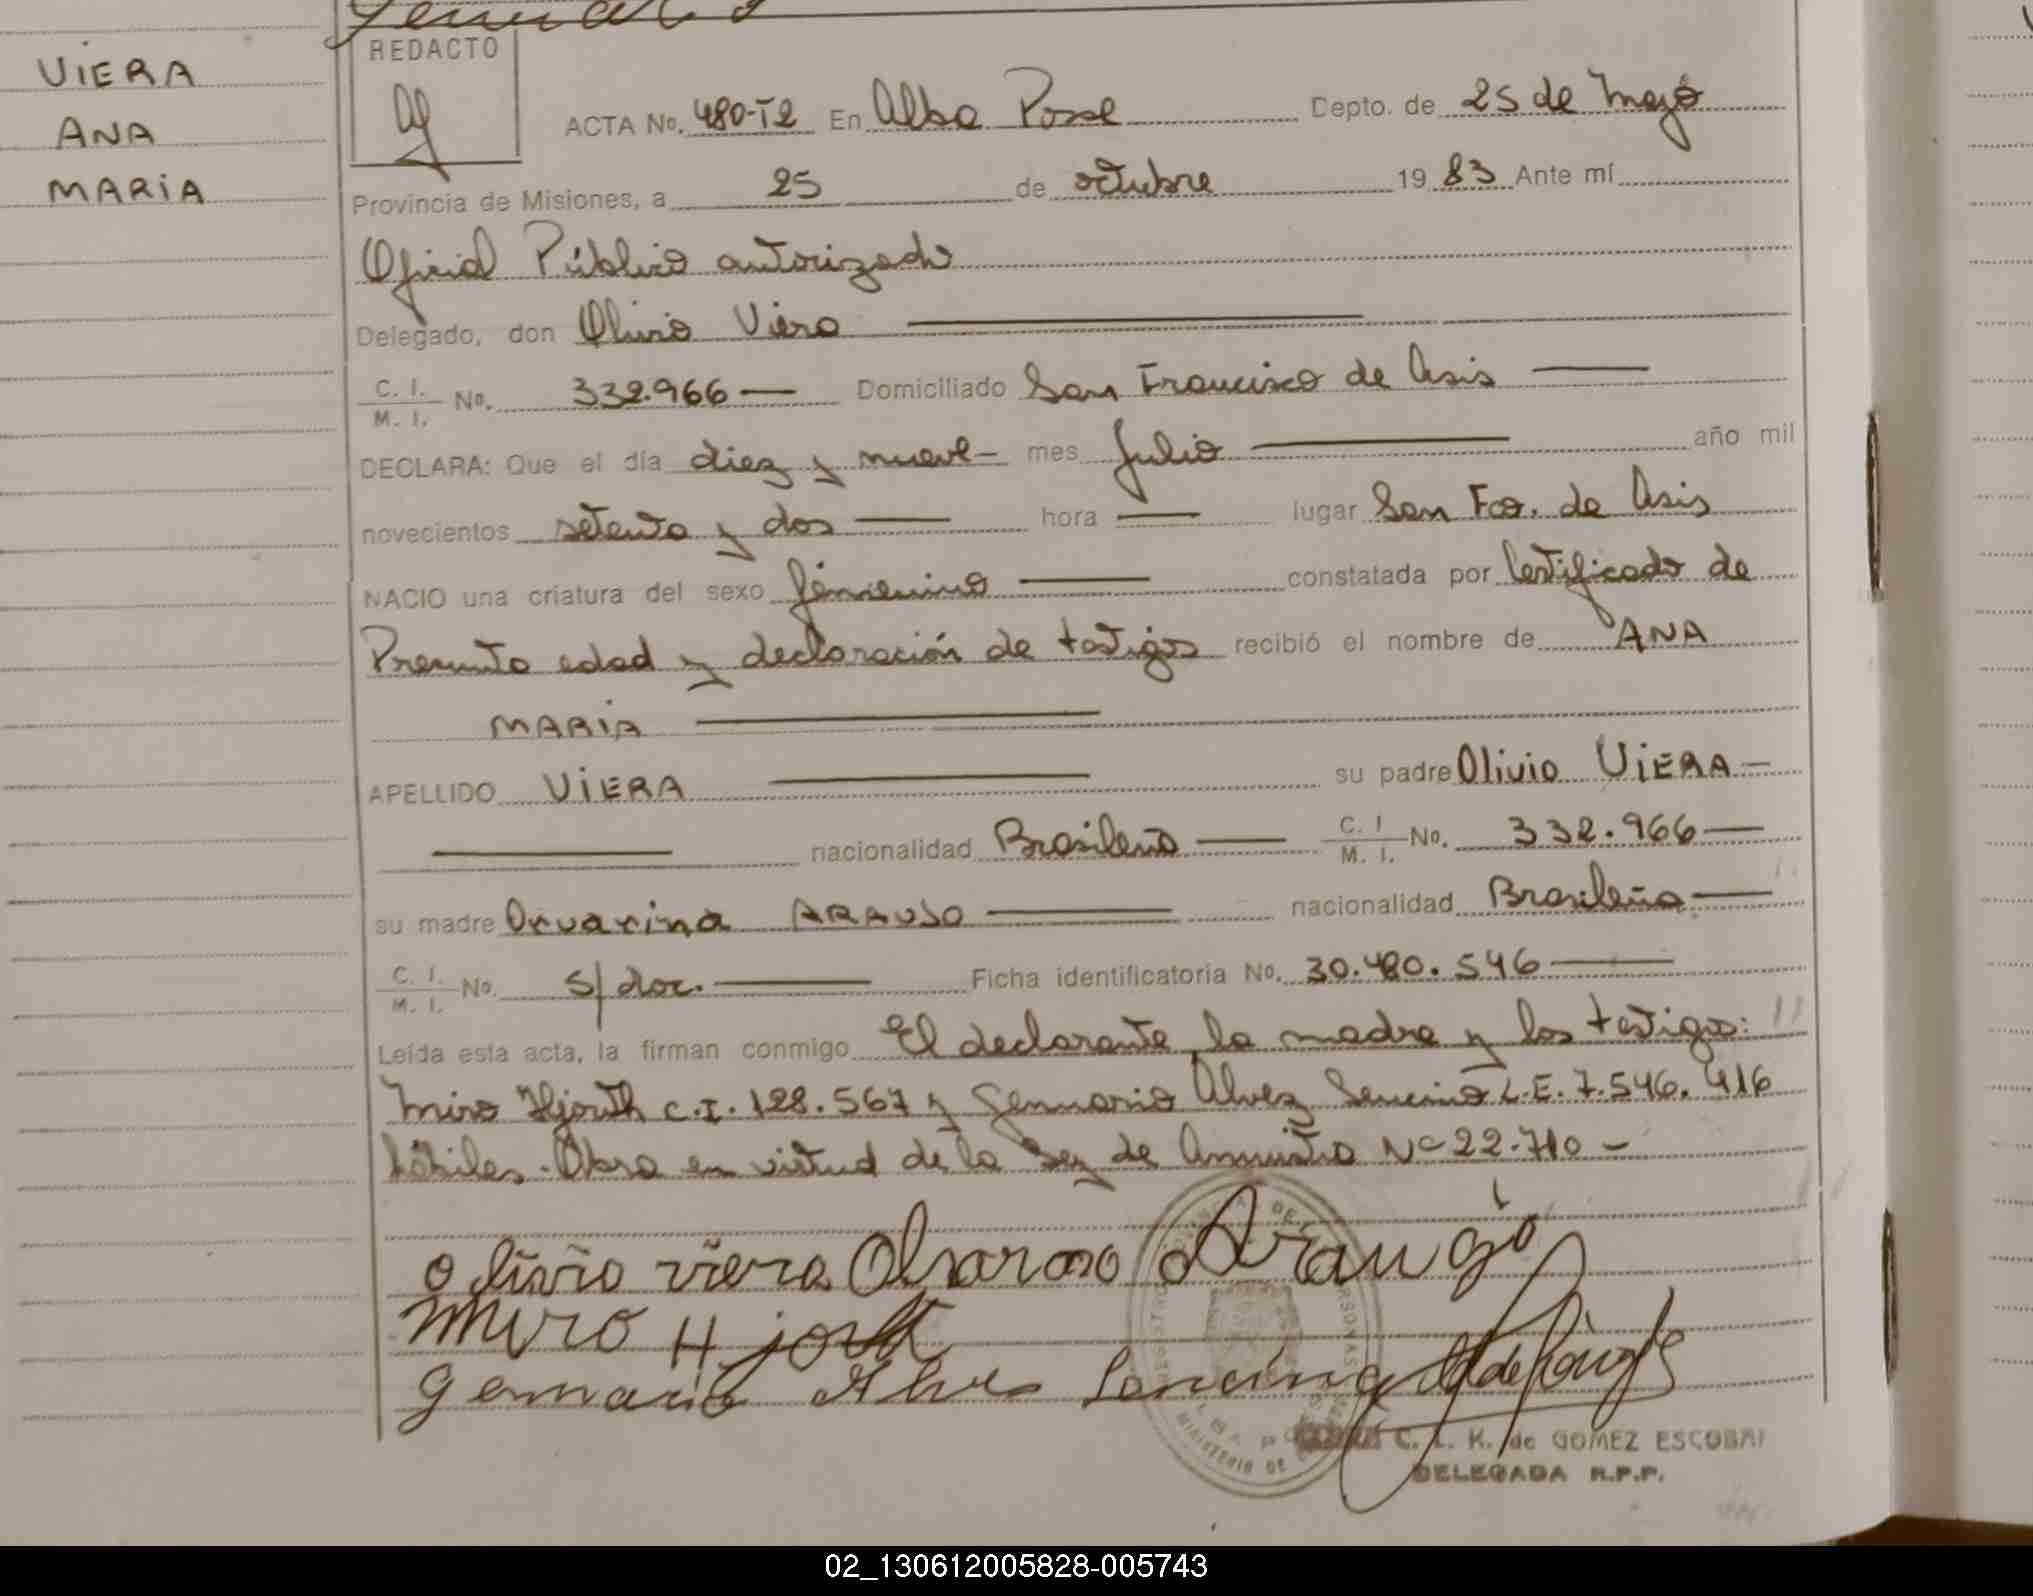 VIERA
ANA
MARIA
REDACTO
ACTA No. 480-T2 En Alba Posse Depto. de 25 de Mayo
Provincia de Misiones, a 25 de octubre 19 83 Ante mí
Oficial Público autorizado
Delegado, don Olivio Viera
C. I. / M. I. No. 332.966 — Domiciliado San Francisco de Asis —
DECLARA: Que el día diez y nueve — mes Julio — año mil
novecientos setenta y dos — hora — lugar San Fco. de Asis
NACIO una criatura del sexo femenino — constatada por Certificado de
Presunta edad y declaración de testigos recibió el nombre de ANA
MARIA —
APELLIDO VIERA — su padre Olivio VIERA —
— nacionalidad Brasileña — C. I / M. I. No. 332.966 —
su madre Orvarina ARAUJO — nacionalidad Brasileña —
C. I. / M. I. No. s/doc. — Ficha identificatoria No. 30.480.546 —
Leída esta acta, la firman conmigo El declarante la madre y los testigos:
Miro Hjorth C.I. 128.567 y Gennario Alvez L.E. 7.546.416
hábiles. Obra en virtud de la Ley de Amnistia Nº 22.710 —
olivio viera Araujo
Miro Hjorth
Gennario Alves
C. L. K. de GOMEZ ESCOBAR
DELEGADA R.P.P.
02_130612005828-005743